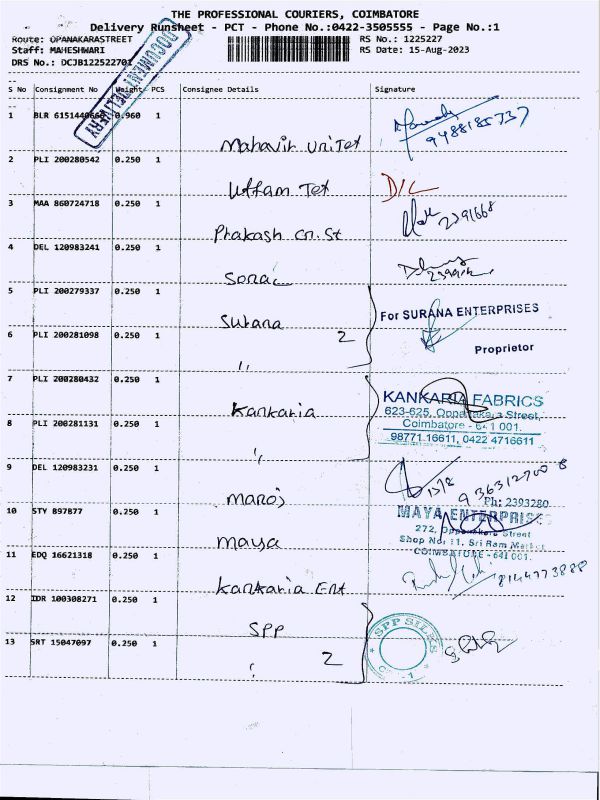 THE PROFESSIONAL COURIERS, COIMBATORE
Delivery Runsheet - PCT - Phone No.:0422-3505555 - Page No.:1
Route: OPANAKARASTREET RS No.: 1225227
Staff: MAHESHWARI RS Date: 15-Aug-2023
DRS No.: DCJB122522701
DOCUMENT DELIVERY
S No Consignment No Weight PCS Consignee Details Signature
1 BLR 0.960 1
Mahavir UniTex 9488185737
2 PLI 200280542 0.250 1
Uttam Tex D/C
3 MAA 860724718 0.250 1
Prakash Gr.St 2391668
4 DEL 120983241 0.250 1
Sonal
5 PLI 200279337 0.250 1
Surana 2 For SURANA ENTERPRISES
6 PLI 200281098 0.250 1 Proprietor
"
7 PLI 200280432 0.250 1
KANKARIA FABRICS
Kankaria 623-625, Oppanakara Street,
8 PLI 200281131 0.250 1 Coimbatore - 641 001.
" 98771 16611, 0422 4716611
9 DEL 120983231 0.250 1
Manoj
Ph: 2393280
10 STY 897877 0.250 1 MAYA ENTERPRISES
272, Oppanakara Street
Maya Shop No: 11, Sri Ram Market
11 EDQ 16621318 0.250 1 COIMBATORE - 641 001.
Kankaria Ent 8144773888
12 IDR 100308271 0.250 1
SPP
13 SRT 15047097 0.250 1 SPP SILKS
" 2